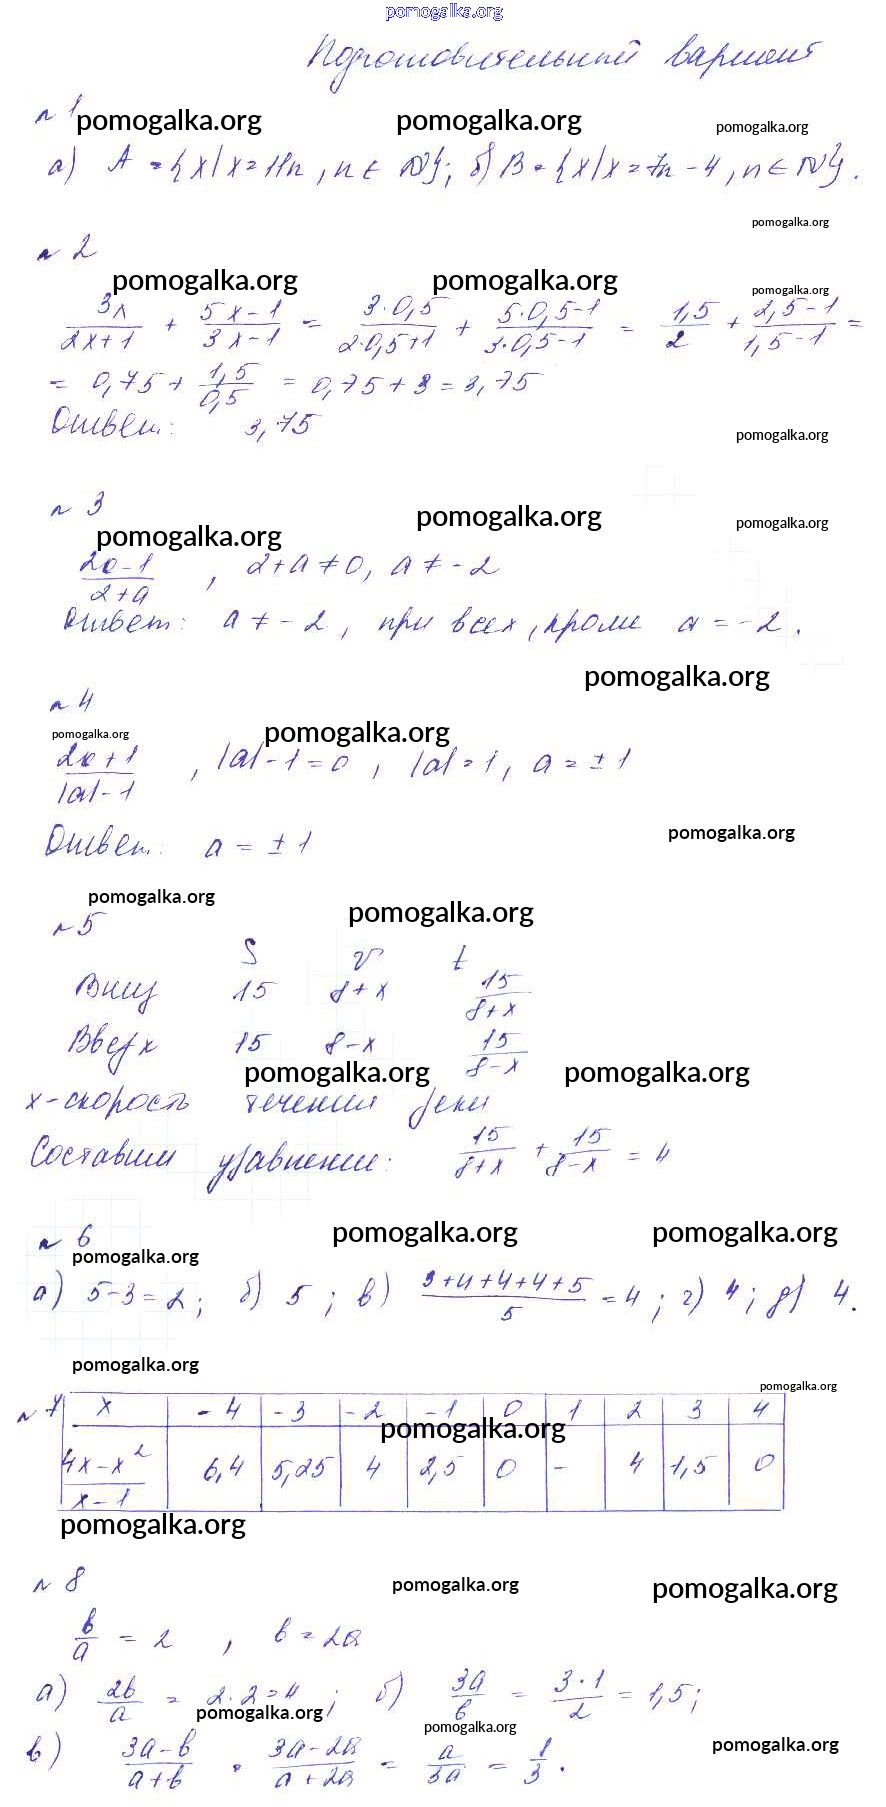 pomogalka.org
Подготовительный вариант
n 1
pomogalka.org pomogalka.org pomogalka.org
а) A = {x/x = 11n, n ∈ N}; б) B = {x/x = 7n - 4, n ∈ N}.
pomogalka.org
n 2
pomogalka.org pomogalka.org pomogalka.org
3x/(2x+1) + (5x-1)/(3x-1) = 3·0,5/(2·0,5+1) + (5·0,5-1)/(3·0,5-1) = 1,5/2 + (2,5-1)/(1,5-1) =
= 0,75 + 1,5/0,5 = 0,75 + 3 = 3,75
Ответ: 3,75
pomogalka.org
n 3
pomogalka.org pomogalka.org pomogalka.org
(2a-1)/(2+a), 2+a≠0, a≠-2
Ответ: a≠-2, при всех, кроме a=-2.
pomogalka.org
n 4
pomogalka.org pomogalka.org
(2a+1)/(|a|-1), |a|-1=0, |a|=1, a=±1
Ответ: a = ±1
pomogalka.org
pomogalka.org pomogalka.org
n 5
S v t
Вниз 15 8+x 15/(8+x)
Вверх 15 8-x 15/(8-x)
pomogalka.org pomogalka.org
x-скорость течения реки
Составим уравнение: 15/(8+x) + 15/(8-x) = 4
n 6
pomogalka.org pomogalka.org pomogalka.org
а) 5-3=2; б) 5; в) (3+4+4+4+5)/5 = 4; г) 4; д) 4.
pomogalka.org pomogalka.org
n 7 x -4 -3 -2 -1 0 1 2 3 4
pomogalka.org
(4x-x²)/(x-1) 6,4 5,25 4 2,5 0 - 4 1,5 0
pomogalka.org
n 8
pomogalka.org pomogalka.org
b/a = 2, b=2a
а) 2b/a = 2·2=4; б) 3a/b = 3·1/2 = 1,5;
pomogalka.org pomogalka.org pomogalka.org
в) (3a-b)/(a+b) = (3a-2a)/(a+2a) = a/3a = 1/3.